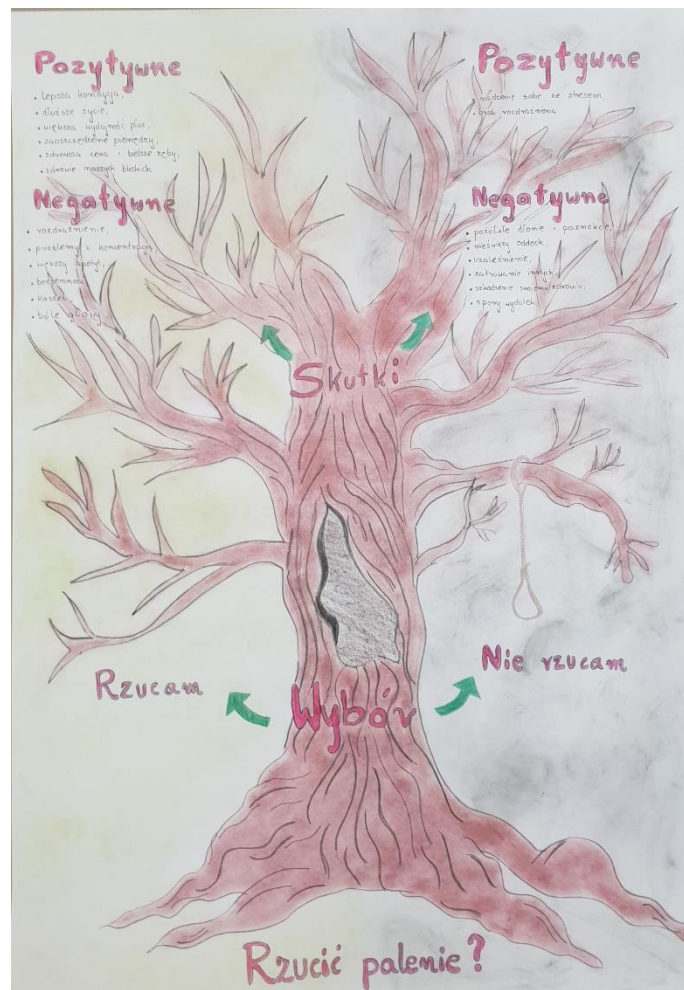 Pozytywne
• lepsza kondycja,
• dłuższe życie,
• większa wydajność płuc,
• zaoszczędzenie pieniędzy,
• zdrowsza cera i bielsze zęby,
• zdrowie naszych bliskich.
Negatywne
• rozdrażnienie,
• problemy z koncentracją,
• większy apetyt,
• bezsenność,
• kaszel,
• bóle głowy.
Pozytywne
• radzenie sobie ze stresem,
• brak rozdrażnienia.
Negatywne
• pożółkłe dłonie i paznokcie,
• nieświeży oddech,
• uzależnienie,
• zatruwanie innych,
• szkodzenie swojemu zdrowiu,
• spory wydatek.
Skutki
Rzucam
Nie rzucam
Wybór
Rzucić palenie?